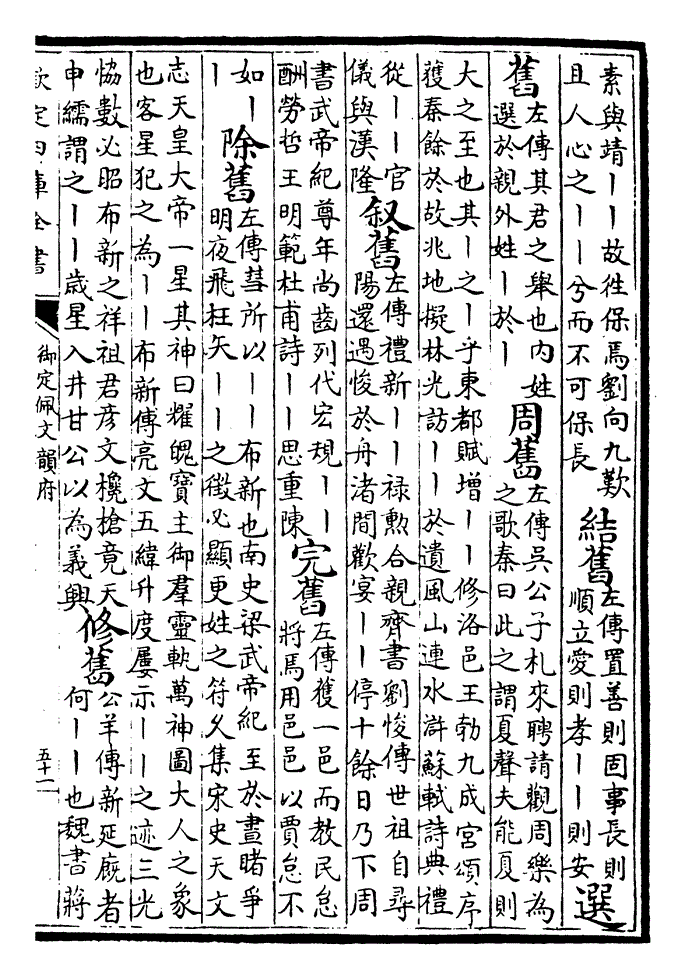 素與靖丨丨故徃保焉劉向九歎
且人心之丨丨兮而不可保長
結舊
左傳置善則固事長則
順立愛則孝丨丨則安
選
舊
左傳其君之舉也内姓
選於親外姓丨於丨
周舊
左傳吳公子札來聘請觀周樂為
之歌秦曰此之謂夏聲夫能夏則
大之至也其丨之丨乎東都賦增丨丨修洛邑王勃九成宫頌序
獲秦餘於故兆地擬林光訪丨丨於遺風山連水滸蘇軾詩典禮
從丨丨官
儀與漢隆
叙舊
左傳禮新丨丨禄勲合親齊書劉悛傳世祖自尋
陽還遇悛於舟渚間歡宴丨丨停十餘日乃下周
書武帝紀尊年尚齒列代宏規丨丨
酬勞哲王明範杜甫詩丨丨思重陳
完舊
左傳獲一邑而教民怠
將焉用邑邑以賈怠不
如丨
丨
除舊
左傳彗所以丨丨布新也南史梁武帝紀至於晝睹爭
明夜飛枉矢丨丨之徵必顯更姓之符乂集宋史天文
志天皇大帝一星其神曰耀魄寳主御羣靈執萬神圖大人之象
也客星犯之為丨丨布新傅亮文五緯升度屢示丨丨之迹三光
恊數必昭布新之祥祖君彦文欃槍竟天
申繻謂之丨丨歲星入井甘公以為義興
修舊
公羊傳新延廐者
何丨丨也魏書蔣
欽定四庫全書
御定佩文韻府
五十一